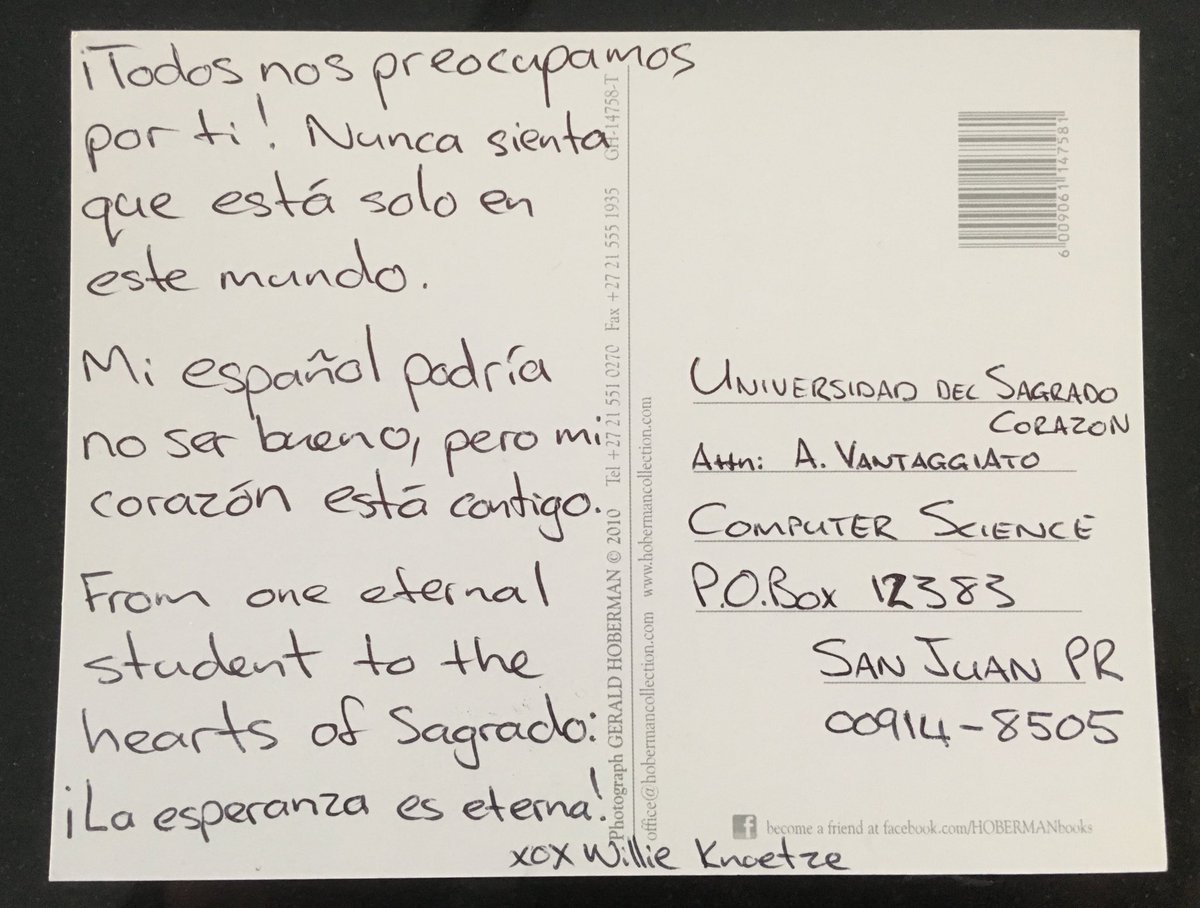 ¡Todos nos preocupamos
por ti! Nunca sienta
que está solo en
este mundo.
Mi español podría
no ser bueno, pero mi
corazón está contigo.
From one eternal
student to the
hearts of Sagrado:
¡La esperanza es eterna!
xox Willie Knoetze
Photograph GERALD HOBERMAN © 2010 Tel +27 21 551 0270 Fax +27 21 555 1935 GH-14758-T
office@hobermancollection.com www.hobermancollection.com
6 009061 147581
UNIVERSIDAD DEL SAGRADO
CORAZON
Attn: A. VANTAGGIATO
COMPUTER SCIENCE
P.O.Box 12383
SAN JUAN PR
00914-8505
f become a friend at facebook.com/HOBERMANbooks